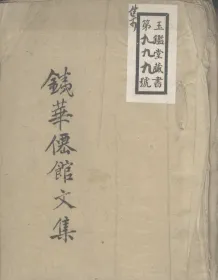 玉鑑堂藏書
第九九九號
集部
鐵華僊館文集